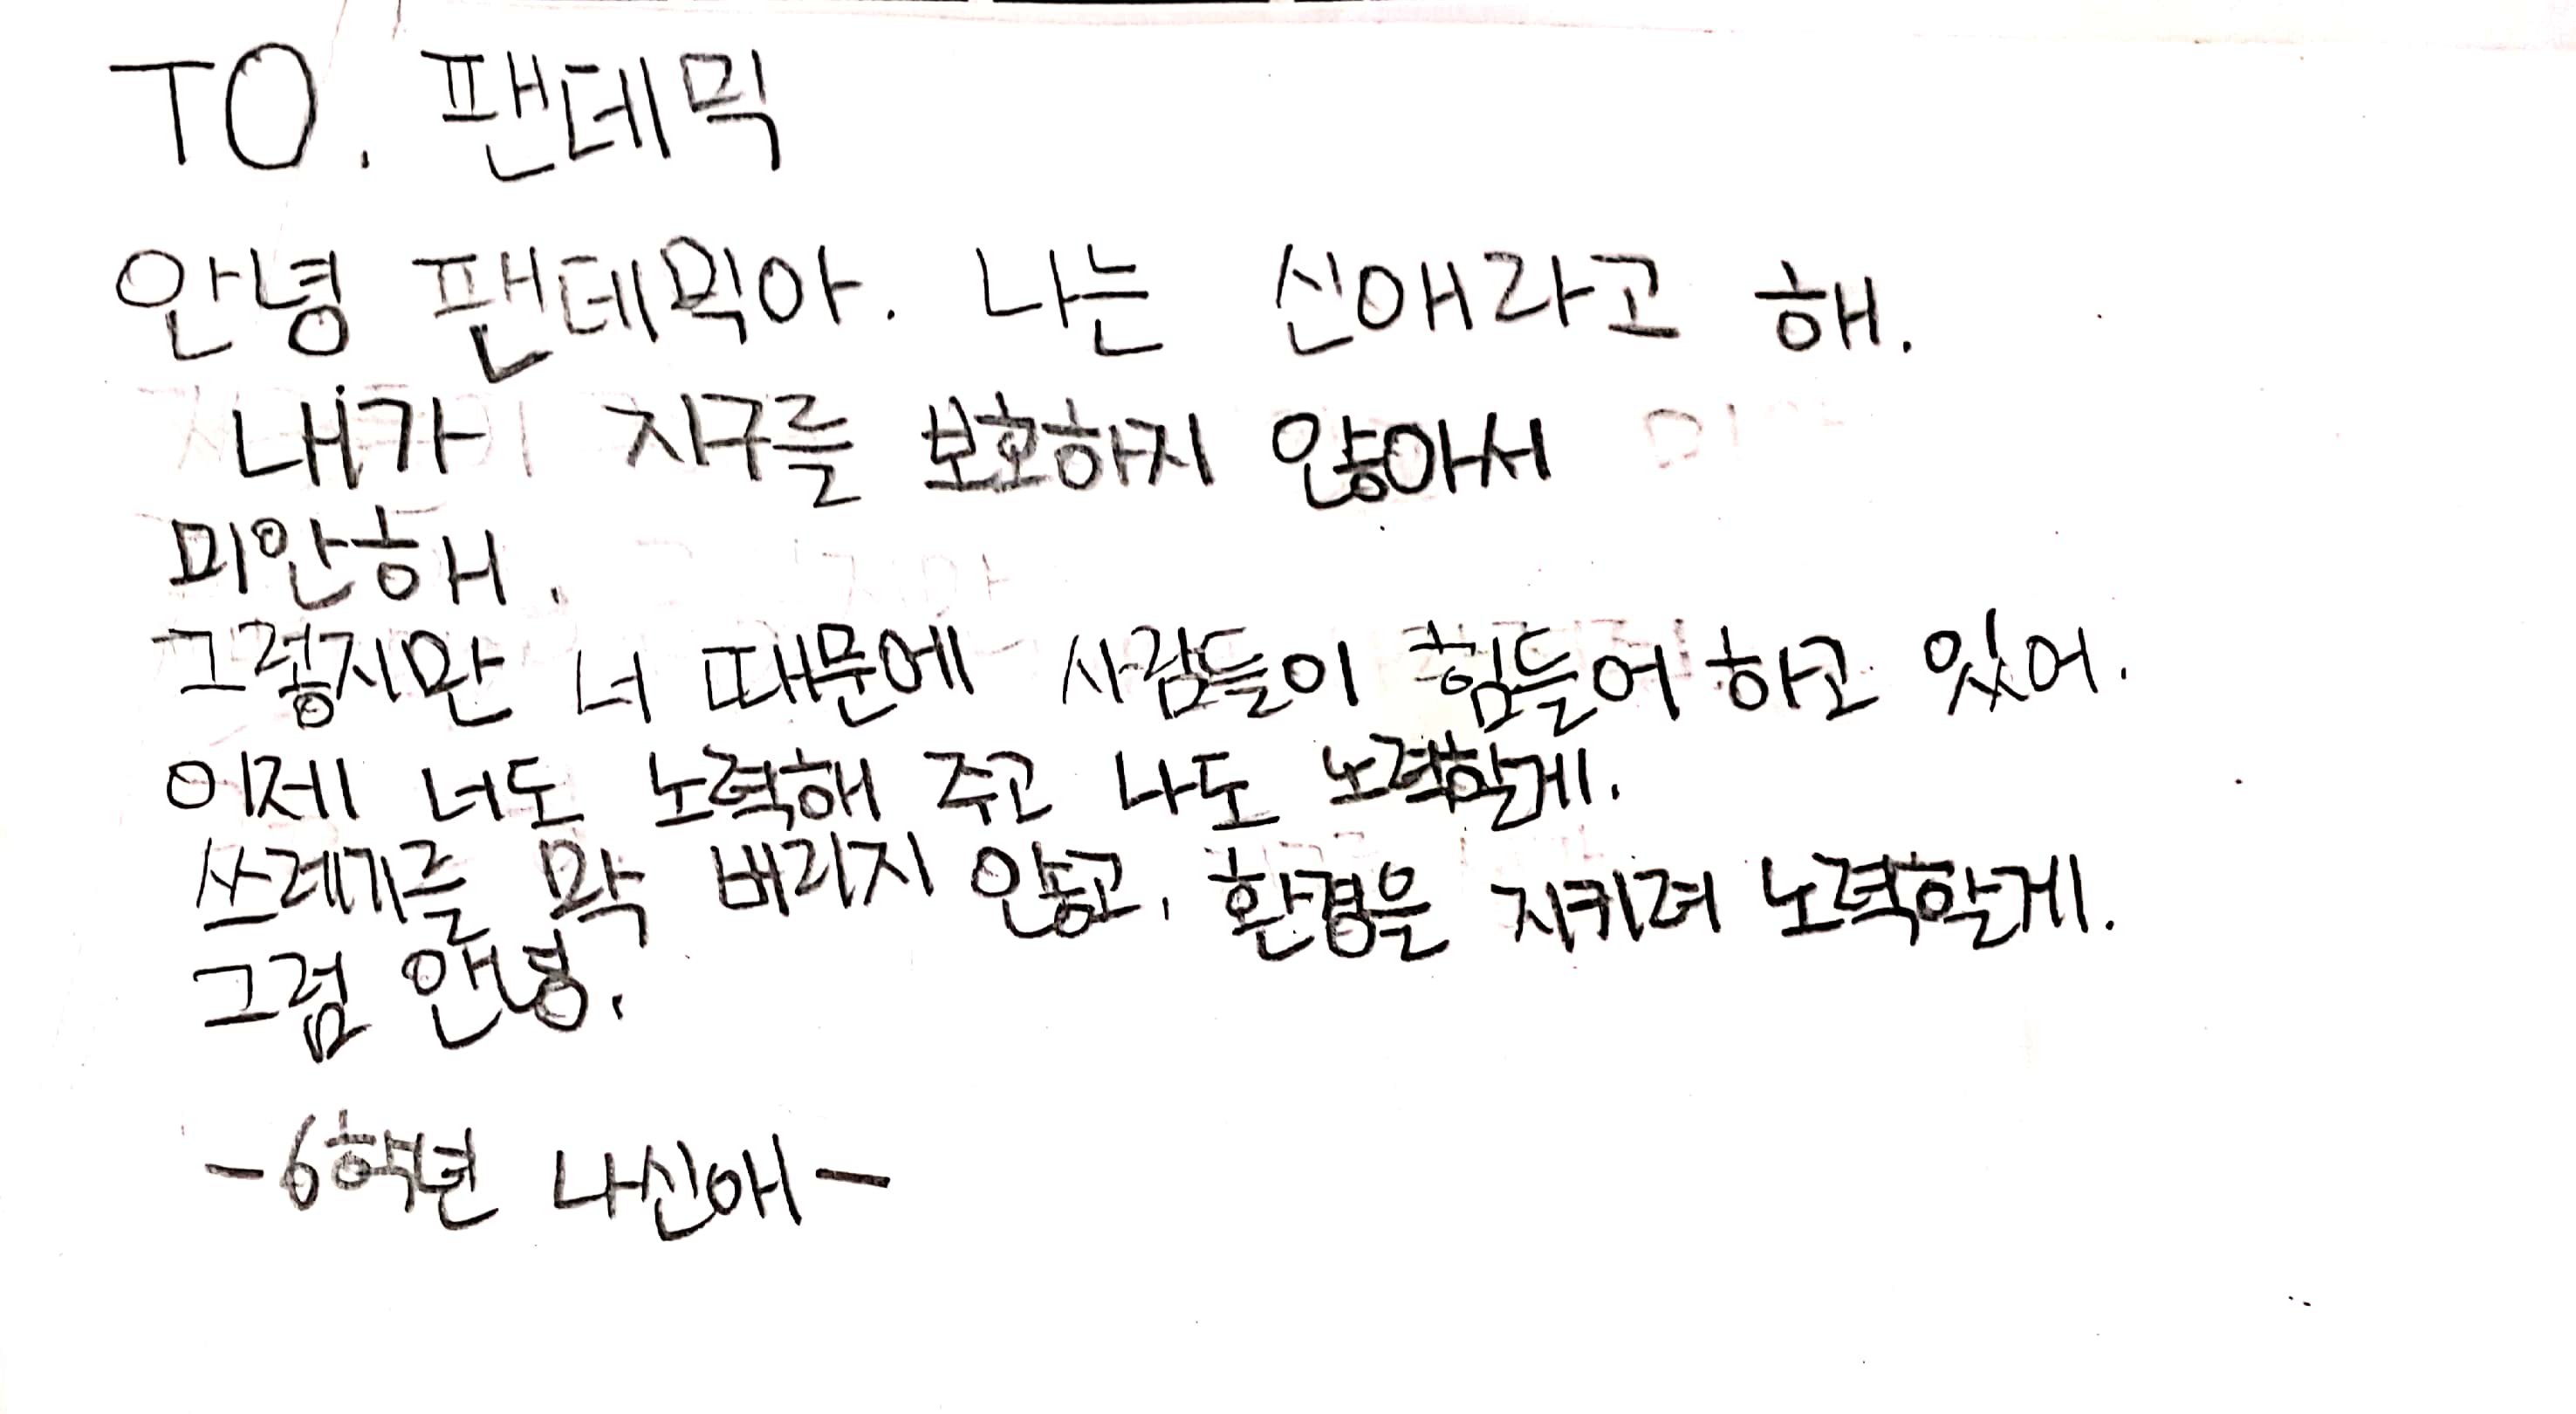 TO. 팬데믹
안녕 팬데믹아. 나는 신애라고 해.
내가 지구를 보호하지 않아서
미안해.
그렇지만 너 때문에 사람들이 힘들어 하고 있어.
이제 너도 노력해 주고 나도 노력할게.
쓰레기를 막 버리지 않고, 환경을 지키려 노력할게.
그럼 안녕.
-6학년 나신애-